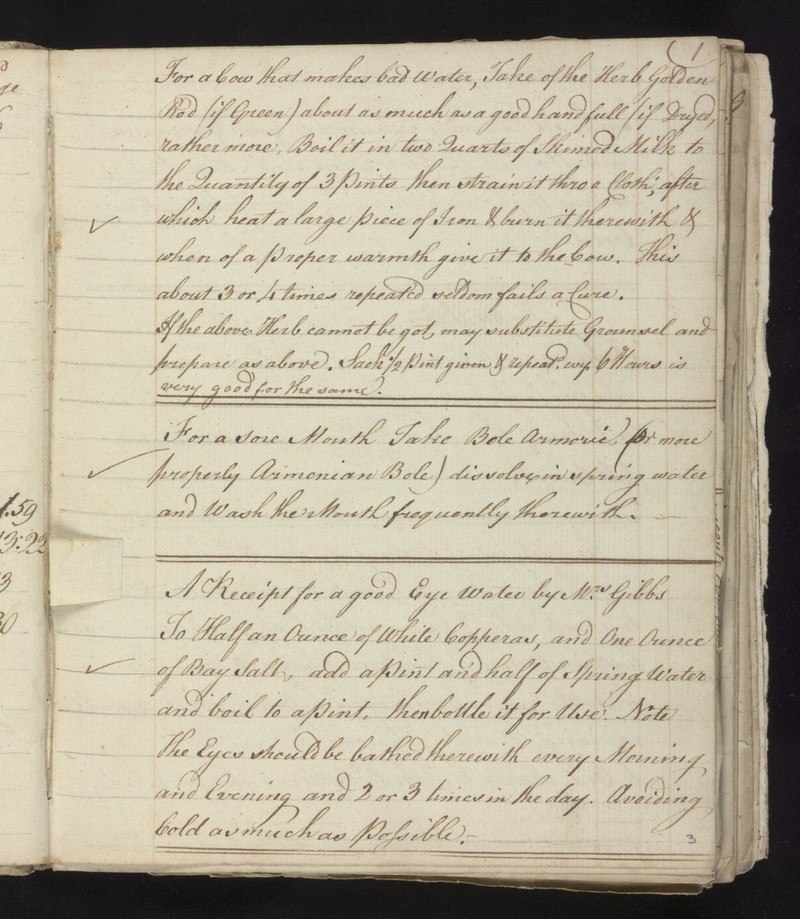 (1
For a Cow that makes bad Water, Take of the Herb Golden
Rod (if Green) about as much as a good handfull (if Dryed,
rather more, Boil it in two Quarts of Skimed Milk to
the Quantity of 3 pints then strain it thro a Cloth, after
which heat a large piece of Iron & burn it therewith &
when of a proper warmth give it to the Cow. This
about 3 or 4 times repeated seldom fails a Cure.
If the above Herb cannot be got, may substitute Grounsel and
prepare as above. Sack 1/2 pint given & repeatd. evy. 6 Hours is
very good for the same.
For a sore Mouth Take Bole Armoric (or more
properly Armenian Bole) dissolve in spring water
and Wash the Mouth frequently therewith.
A Receipt for a good Eye Water by Mrs Gibbs
To Half an Ounce of White Copperas, and One Ounce
of Bay Salt, add a pint and half of Spring Water
and boil to a pint. then bottle it for Use. Note
the Eyes should be bathed therewith every Morning
and Evening and 2 or 3 times in the day. Avoiding
Cold as much as Possible.
3
1.59
13:22
3
30